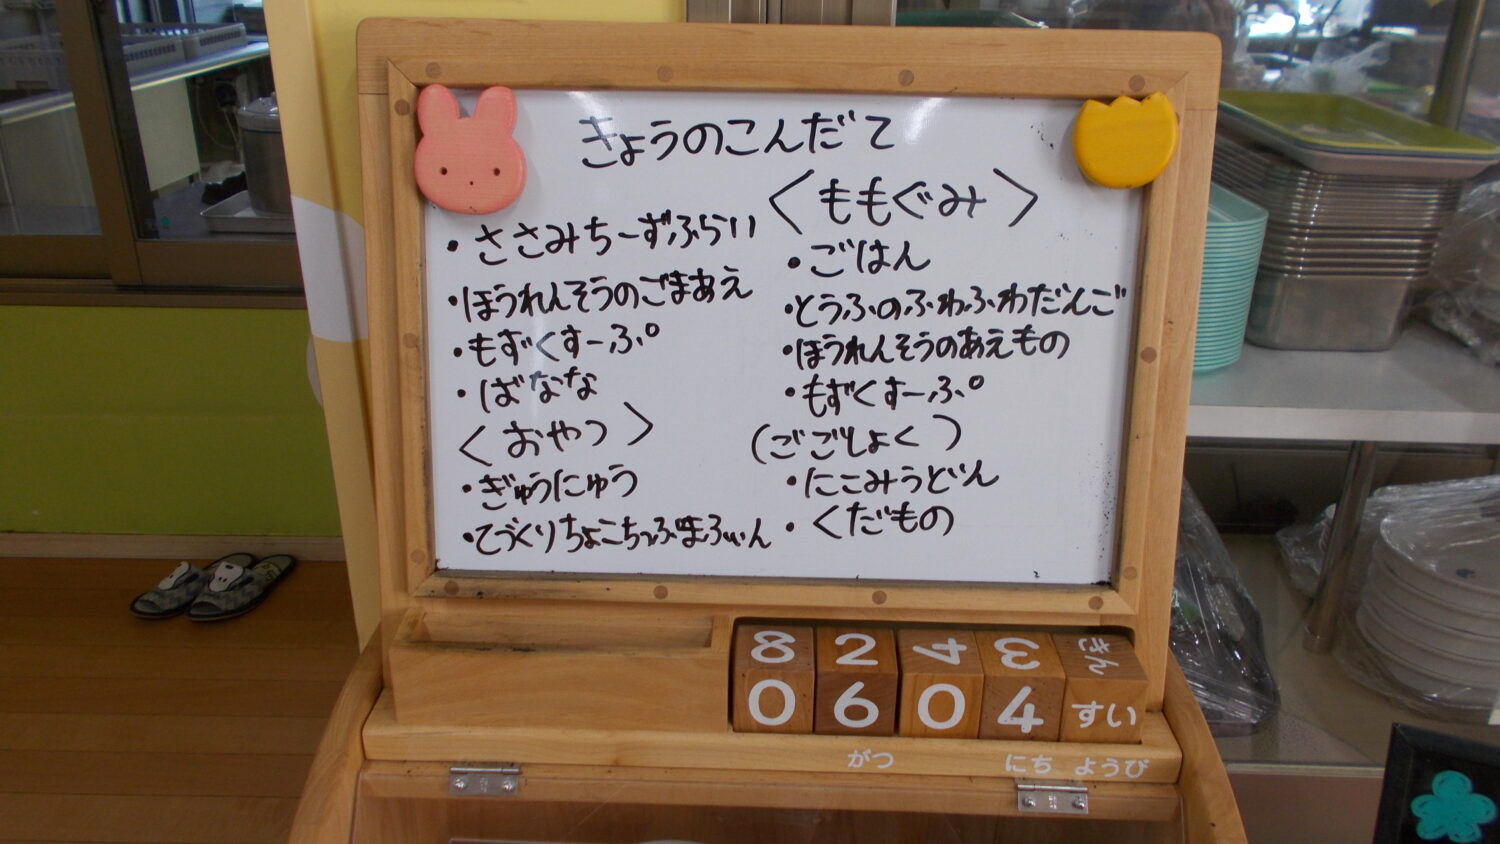 きょうのこんだて
・ささみちーずふらい
・ほうれんそうのごまあえ
・もずくすーぷ
・ばなな
〈おやつ〉
・ぎゅうにゅう
・てづくりちょこちっぷまふぃん
〈ももぐみ〉
・ごはん
・とうふのふわふわだんご
・ほうれんそうのあえもの
・もずくすーぷ
(ごごしょく)
・にこみうどん
・くだもの
8 2 4 3 きん
0 6 0 4 すい
がつ にち ようび